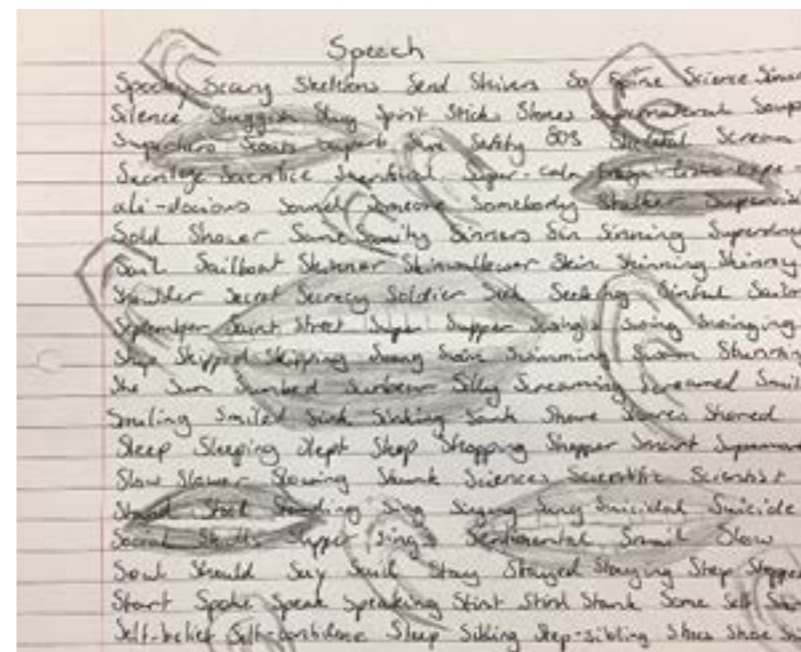 Speech
Spooky Scary Skeletons Send Shivers So Spine Science
Silence Sluggish Slug Spirit Sticks Stones Supernatural
Superhero Scouts Sure Safety SOS Skeletal Scream
Sacrilege Sacrifice
ali-docious Sound Someone Somebody Stalker
Sold Shower Same Sanity Sinners Sin Sinning
Soul Sailboat Skin Skinning
Shoulder Secret Secrecy Soldier Sick Seeking Sinful Sailor
September Saint Street Super Supper Swing Swinging
Ship Skipped Skipping Swam Swim Swimming Swum
She Sun Sunbed Sunbear Silly Screaming Screamed
Smiling Smiled Sink Sinking Sank Share Shares Shared
Sleep Sleeping Slept Shop Shopping Shopper Smart
Slow Slower Slowing Shrunk Sciences Scientific Scientist
Stand Stood Standing Sing Saying Sung Suicidal Suicide
Social Skills Sings Sentimental Small Slow
Soul Should Say Said Stay Stayed Staying Step Stopped
Start Spoke Speak Speaking Stint Stink Stank Some Self
Self-belief Self-confidence Sleep Sibling Step-sibling Shoes Shoe